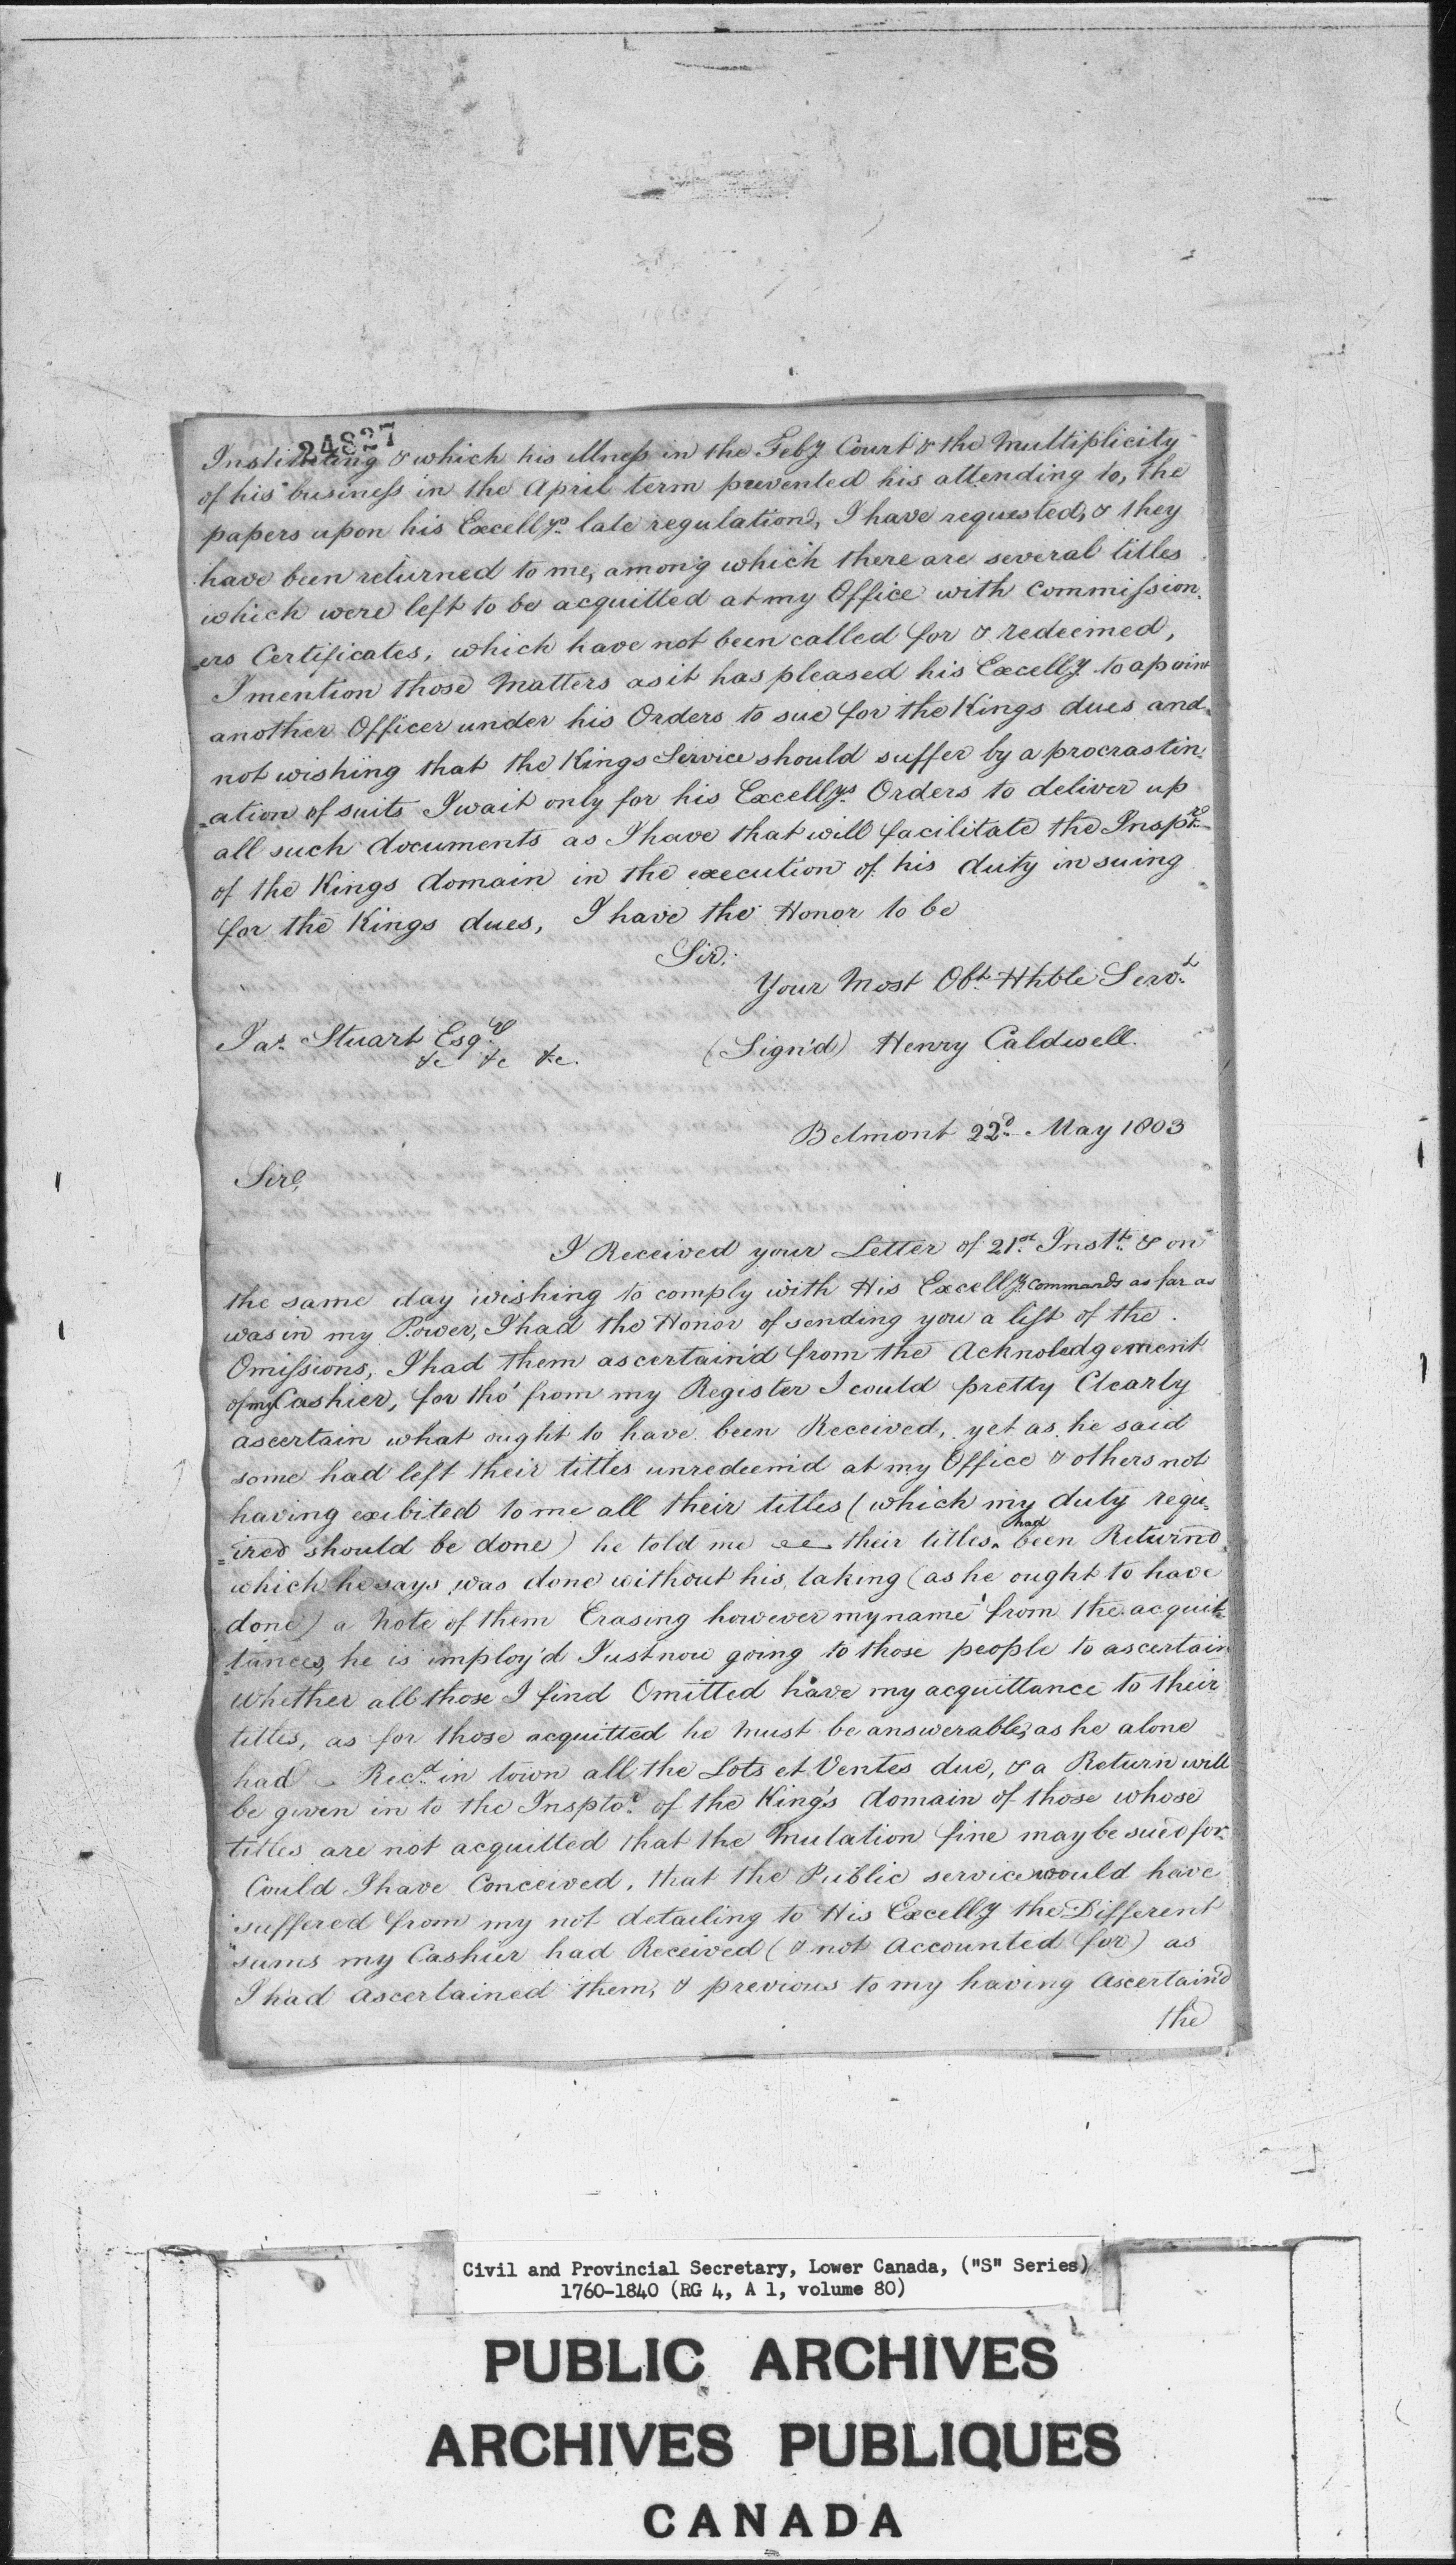 24827
Instituting & which his illness in the Feby Court & the Multiplicity
of his business in the April term prevented his attending to, The
papers upon his Excellys. late regulations, I have requested, & they
have been returned to me, among which there are several titles
which were left to be acquitted at my Office with Commission-
-ers Certificates, which have not been called for & redeemed,
I mention those Matters as it has pleased his Excelly to apoint
another Officer under his Orders to sue for the Kings dues and
not wishing that the Kings Service should suffer by a procrastin-
-ation of suits I wait only for his Excellys Orders to deliver up
all such documents as I have that will facilitate the Insptr.
of the Kings domain in the execution of his duty in suing
for the Kings dues, I have the Honor to be
Sir.
Your Most Obt. Hhble Servt.
Jas. Stuart Esqre
&c &c &c.
(Sign'd) Henry Caldwell.
Belmont 22d. May 1803
Sir,
I Received your Letter of 21st. Instt. & on
the same day wishing to comply with His Excellys. Commands as far as
was in my Power, I had the Honor of sending you a list of the
Omissions, I had them ascertain'd from the Acknoledgement
of my Cashier, for tho' from my Register I could pretty Clearly
ascertain what ought to have been Received, yet as he said
some had left their titles unredeem'd at my Office & others not
having exibited to me all their titles (which my duty requ-
-ired should be done) he told me their titles had been Return'd
which he says was done without his taking (as he ought to have
done) a Note of them Erasing however my name from the acquit-
-tances, he is imploy'd Just now going to those people to ascertain
Whether all those I find Omitted have my acquittance to their
titles, as for those acquitted he must be answerable, as he alone
had Recd. in town all the Lots et Ventes due, & a Return will
be given in to the Insptor. of the King's domain of those whose
titles are not acquitted that the Mutation fine may be sued for.
Could I have Conceived, that the Public service would have
suffered from my not detailing to His Excelly the Different
sums my Cashier had Received (& not Accounted for) as
I had ascertained them, & previous to my having Ascertain'd
the
Civil and Provincial Secretary, Lower Canada, ("S" Series)
1760-1840 (RG 4, A 1, volume 80)
PUBLIC ARCHIVES
ARCHIVES PUBLIQUES
CANADA